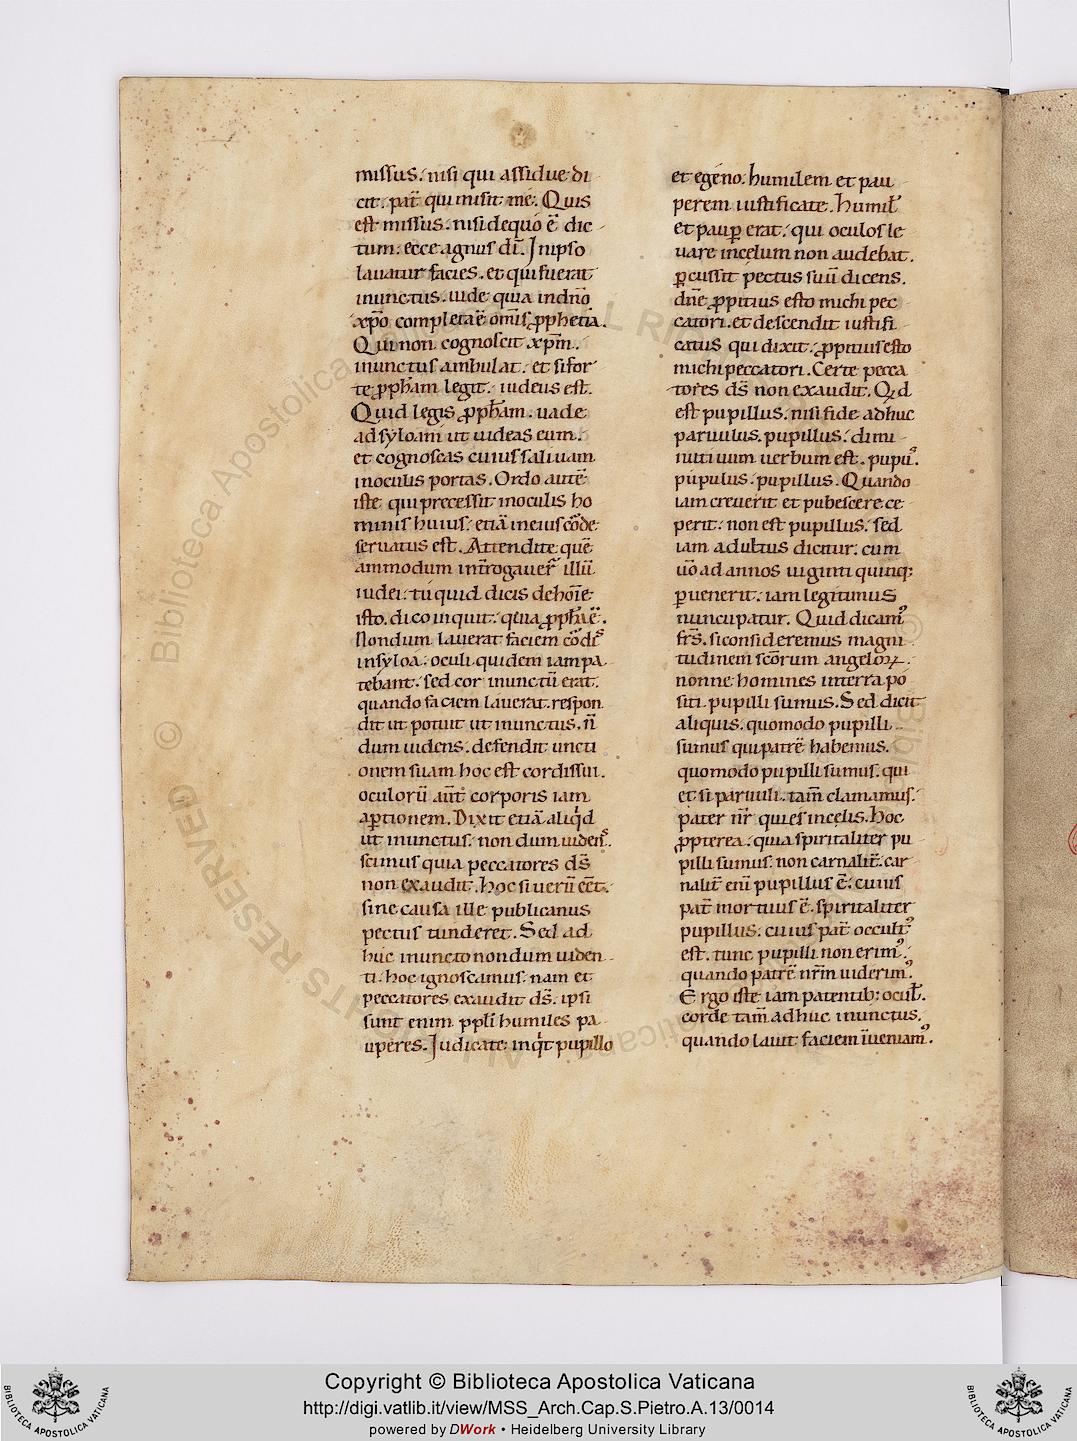 missus. nisi qui assidue di
cit. pat̄ qui misit me. Quis
est missus. nisi dequo ē dic
tum. ecce agnus dī. Inipso
lavatur facies. et qui fuerat
inunctus. uide quia indn̄o
xp̄o completa ē omīs ꝓphetia.
Qui non cognoscit xp̄m.
inunctus ambulat. et sifor
te ꝓph̄am legit. iudeus est.
Quid legis ꝓph̄am. uade
adsyloam ut uideas eum.
et cognoscas cuius salivam
inoculis portas. Ordo autē
iste qui precessit inoculis ho
minis huius. etiā ineius cōde
servatus est. Attendite quē
ammodum int̄rogauer̄ illū
iudei. tu quid dicis dehoīe
isto. dico inquit. quia ꝓph̄a ē.
Nondum lauerat faciem cōdiꝰ
insyloa. oculi quidem iam pa
tebant. sed cor inunctū erat.
quando faciem lauerat. respon
dit ut potuit ut inunctus. n̄
dum uidens. defendit uncti
onem suam hoc est cordis sui.
oculorū aūt corporis iam
aꝑtionem. Dixit etiā aliqͥd
ut inunctus. non dum uidens.
scimus quia peccatores dš
non exaudit. hoc si uerū eēt.
sine causa ille publicanus
pectus tunderet. Sed ad
huc inuncto nondum uiden
ti. hoc ignoscamus. nam et
peccatores exaudit dš. ipsi
sunt enim ppl̄i humiles pa
uperes. Iudicate inqͥt pupillo
et egeno. humilem et pau
perem iustificate. humil̄
et pauꝑ erat. qui oculos le
uare incelum non audebat.
ꝑcussit pectus suū dicens.
dn̄e ꝓpitius esto michi pec
catori. et descendit iustifi
catus qui dixit. ꝓpitius esto
michi peccatori. Certe pecca
tores dš non exaudit. Qd
est pupillus. nisi fide adhuc
paruulus. pupillus. dimi
nutiuum uerbum est. pupuꝰ.
pupulus. pupillus. Quando
iam creuerit et pubescere ce
perit. non est pupillus. sed
iam adultus dicitur. cum
ūo ad annos uiginti quinq;
ꝑuenerit. iam legitimus
nuncupatur. Quid dicamꝰ
fr̄s. si consideremus magni
tudinem sc̄orum angeloꝝ.
nonne homines interra po
siti. pupilli sumus. Sed dicit
aliquis. quomodo pupilli
sumus qui patrē habemus.
quomodo pupilli sumus. qui
et si paruuli. tam̄ clamamus.
pater nr̄ qui es incelis. Hoc
ꝓpterea. quia spiritaliter pu
pilli sumus. non carnalit̄. car
nalit̄ eni pupillus ē. cuius
pat̄ mortuus ē. spiritaliter
pupillus. cuius pat̄ occultꝰ
est. tunc pupilli non erimꝰ.
quando patrē nr̄m uiderimꝰ.
Ergo iste iam patentib; ocul̄.
corde tam̄ adhuc inunctus.
quando lauit faciem īueniamꝰ.
© Biblioteca Apostolica Vaticana ALL RIGHTS RESERVED
Copyright © Biblioteca Apostolica Vaticana
http://digi.vatlib.it/view/MSS_Arch.Cap.S.Pietro.A.13/0014
powered by DWork • Heidelberg University Library
BIBLIOTECA APOSTOLICA VATICANA
BIBLIOTECA APOSTOLICA VATICANA